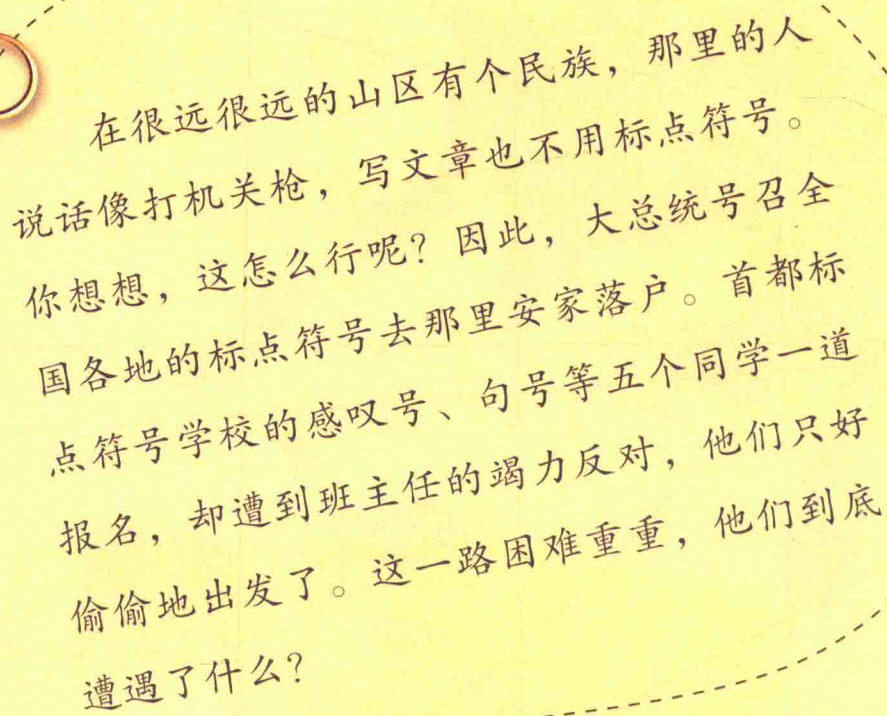 在很远很远的山区有个民族，那里的人
说话像打机关枪，写文章也不用标点符号。
你想想，这怎么行呢？因此，大总统号召全
国各地的标点符号去那里安家落户。首都标
点符号学校的感叹号、句号等五个同学一道
报名，却遭到班主任的竭力反对，他们只好
偷偷地出发了。这一路困难重重，他们到底
遭遇了什么？